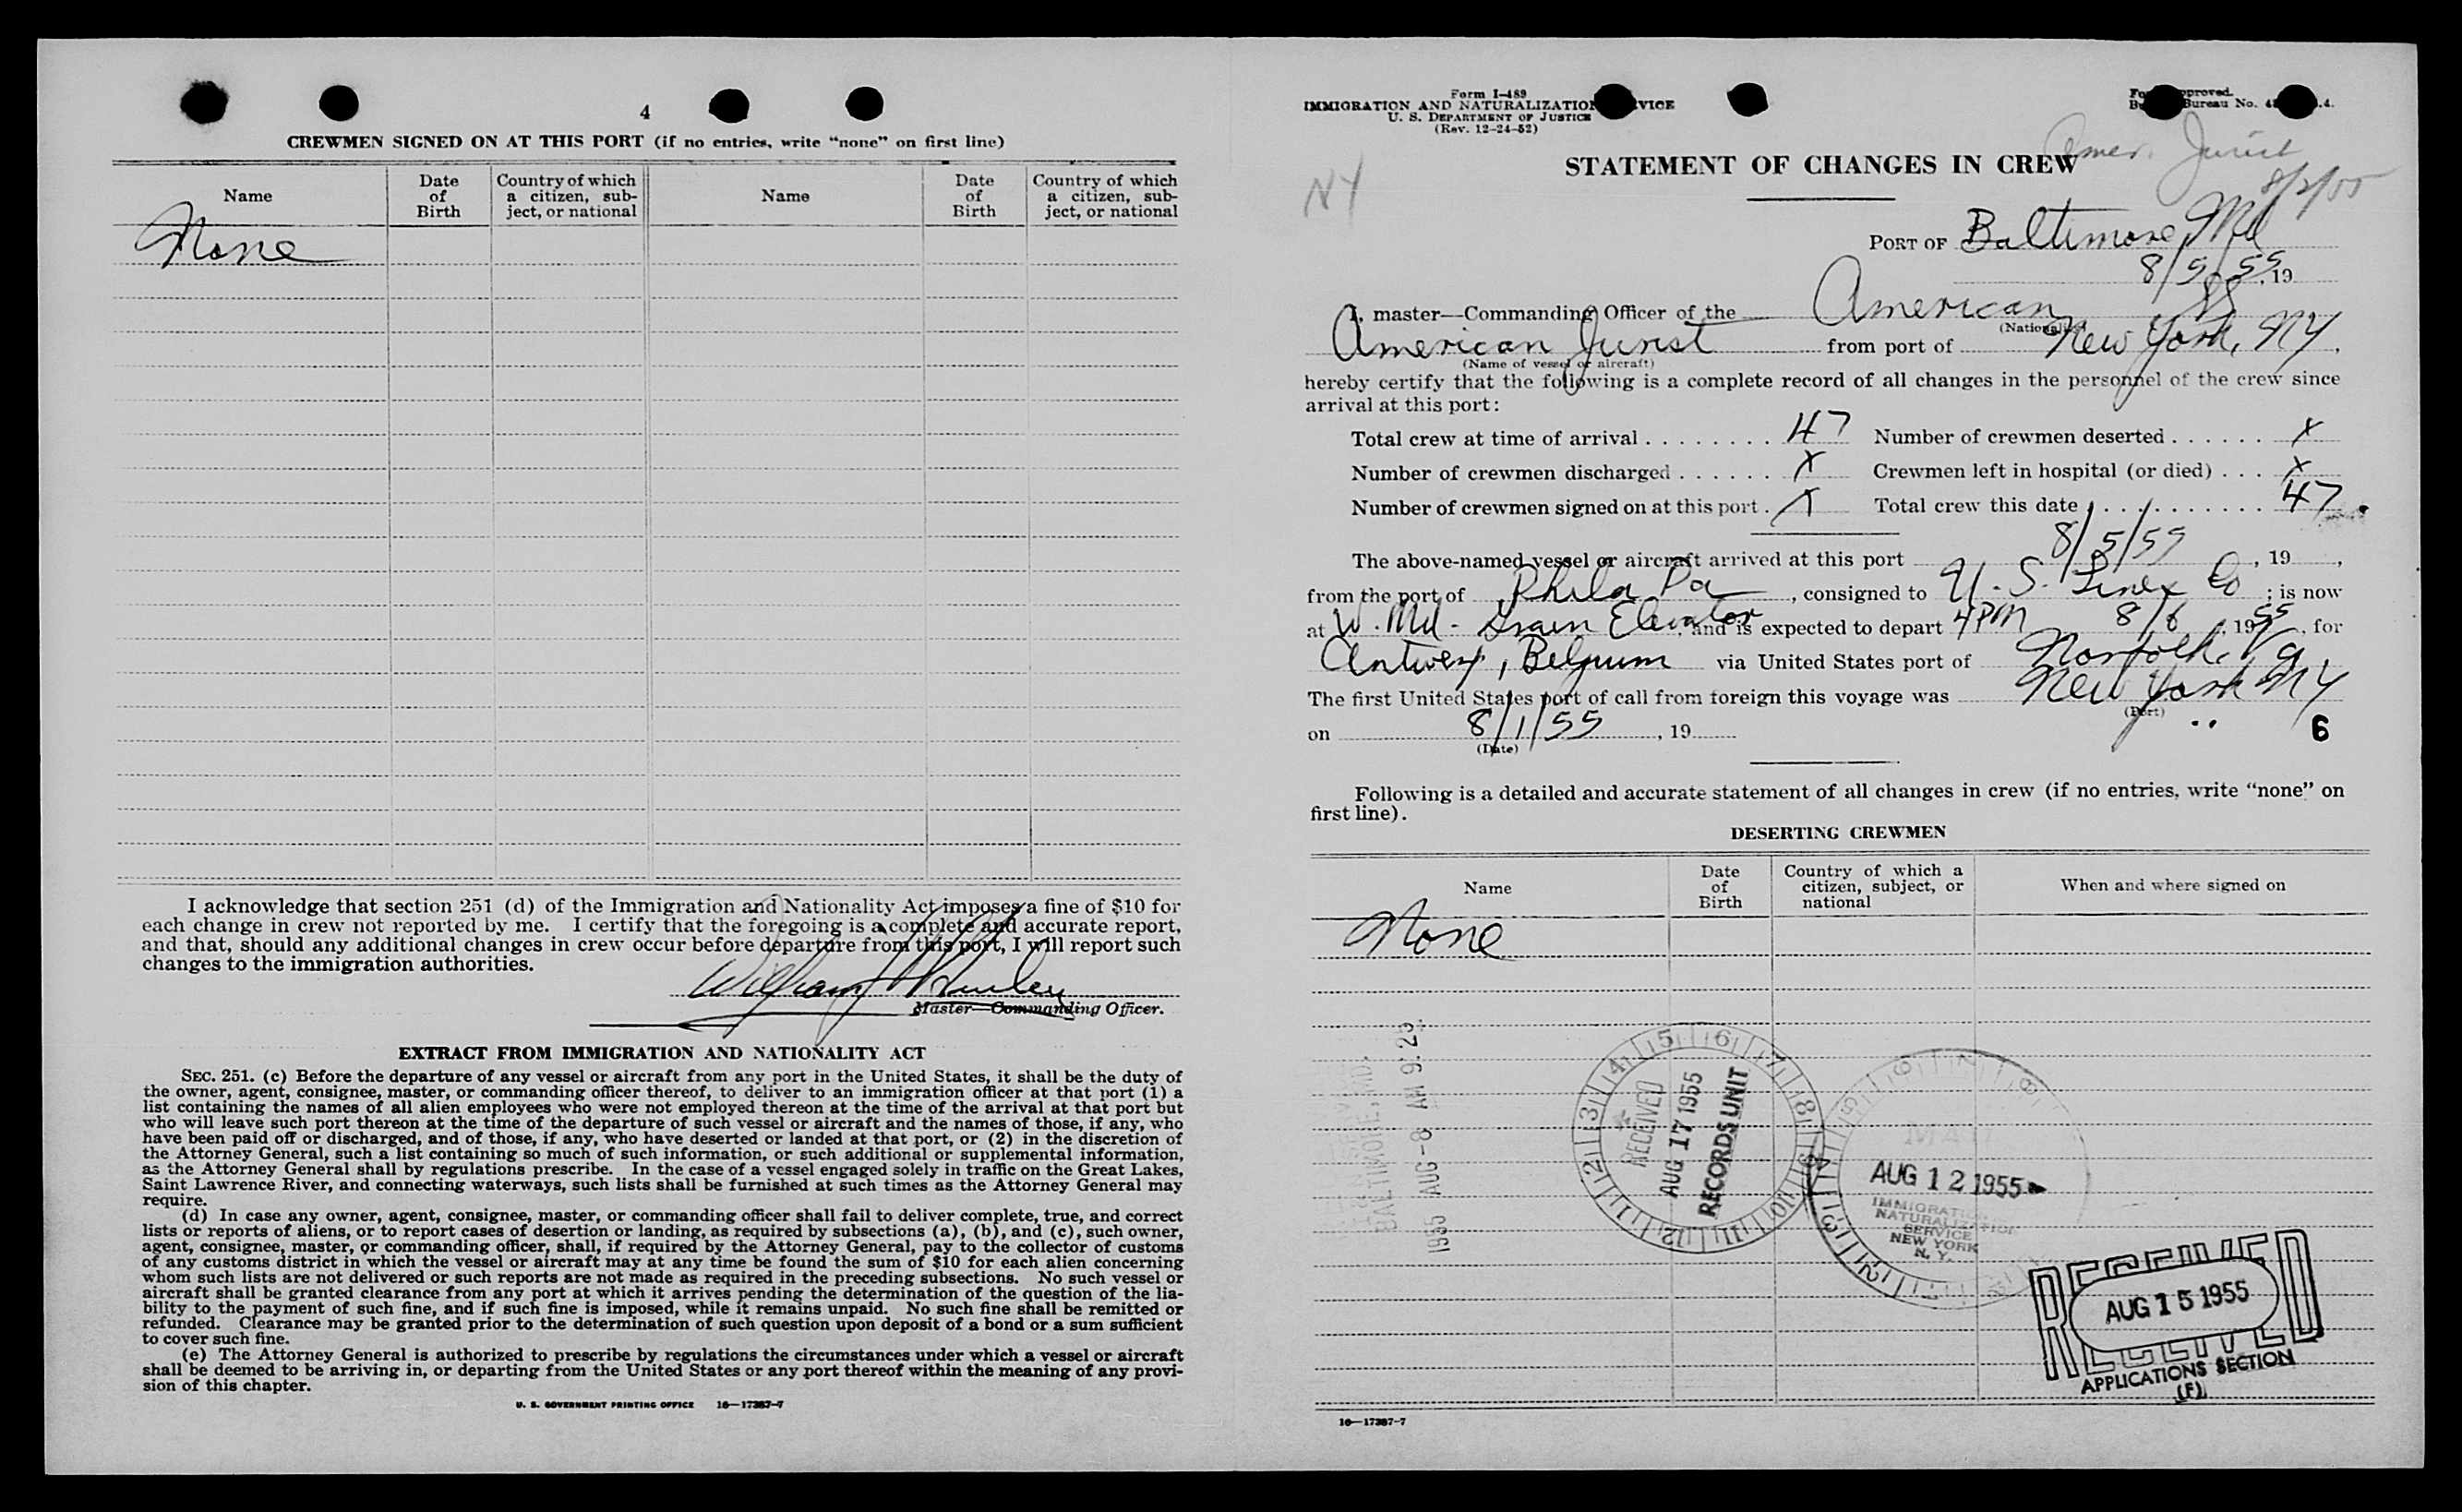 4
CREWMEN SIGNED ON AT THIS PORT (if no entries, write “none” on first line)
Name
Date of Birth
Country of which a citizen, sub-ject, or national
Name
Date of Birth
Country of which a citizen, sub-ject, or national
None
I acknowledge that section 251 (d) of the Immigration and Nationality Act imposes a fine of $10 for
each change in crew not reported by me. I certify that the foregoing is a complete and accurate report,
and that, should any additional changes in crew occur before departure from this port, I will report such
changes to the immigration authorities.
William
Master—Commanding Officer.
EXTRACT FROM IMMIGRATION AND NATIONALITY ACT
SEC. 251. (c) Before the departure of any vessel or aircraft from any port in the United States, it shall be the duty of
the owner, agent, consignee, master, or commanding officer thereof, to deliver to an immigration officer at that port (1) a
list containing the names of all alien employees who were not employed thereon at the time of the arrival at that port but
who will leave such port thereon at the time of the departure of such vessel or aircraft and the names of those, if any, who
have been paid off or discharged, and of those, if any, who have deserted or landed at that port, or (2) in the discretion of
the Attorney General, such a list containing so much of such information, or such additional or supplemental information,
as the Attorney General shall by regulations prescribe. In the case of a vessel engaged solely in traffic on the Great Lakes,
Saint Lawrence River, and connecting waterways, such lists shall be furnished at such times as the Attorney General may
require.
(d) In case any owner, agent, consignee, master, or commanding officer shall fail to deliver complete, true, and correct
lists or reports of aliens, or to report cases of desertion or landing, as required by subsections (a), (b), and (c), such owner,
agent, consignee, master, or commanding officer, shall, if required by the Attorney General, pay to the collector of customs
of any customs district in which the vessel or aircraft may at any time be found the sum of $10 for each alien concerning
whom such lists are not delivered or such reports are not made as required in the preceding subsections. No such vessel or
aircraft shall be granted clearance from any port at which it arrives pending the determination of the question of the lia-
bility to the payment of such fine, and if such fine is imposed, while it remains unpaid. No such fine shall be remitted or
refunded. Clearance may be granted prior to the determination of such question upon deposit of a bond or a sum sufficient
to cover such fine.
(e) The Attorney General is authorized to prescribe by regulations the circumstances under which a vessel or aircraft
shall be deemed to be arriving in, or departing from the United States or any port thereof within the meaning of any provi-
sion of this chapter.
U. S. GOVERNMENT PRINTING OFFICE 16—17387-7
Form I-489
IMMIGRATION AND NATURALIZATION
U. S. DEPARTMENT OF JUSTICE
(Rev. 12-24-52)
Bureau No.
Amer. Jurist
NY
STATEMENT OF CHANGES IN CREW
PORT OF Baltimore, Md
8/5/55, 19
I, master—Commanding Officer of the American SS
(Nationality)
American Jurist from port of New York, NY,
(Name of vessel or aircraft)
hereby certify that the following is a complete record of all changes in the personnel of the crew since
arrival at this port:
Total crew at time of arrival . . . . . . . . 47 Number of crewmen deserted . . . . . . X
Number of crewmen discharged . . . . . . X Crewmen left in hospital (or died) . . . X
Number of crewmen signed on at this port . X Total crew this date . . . . . . . . . . 47
The above-named vessel or aircraft arrived at this port 8/5/55, 19 ,
from the port of Phila Pa, consigned to U. S. Lines Co; is now
at W. Md. Grain Elevator, and is expected to depart 4 PM 8/6, 1955, for
Antwerp, Belgium via United States port of Norfolk, Va,
The first United States port of call from foreign this voyage was New York NY
(Port)
on 8/1/55, 19
(Date)
6
Following is a detailed and accurate statement of all changes in crew (if no entries, write “none” on
first line).
DESERTING CREWMEN
Name
Date of Birth
Country of which a citizen, subject, or national
When and where signed on
None
1955 AUG -8 AM 9:23
BALTIMORE, MD.
RECEIVED
AUG 17 1955
RECORDS UNIT
AUG 12 1955
IMMIGRATION
NATURALIZATION
SERVICE
NEW YORK
N. Y.
RECEIVED
AUG 15 1955
RECEIVED
APPLICATIONS SECTION
(F)
16—17387-7